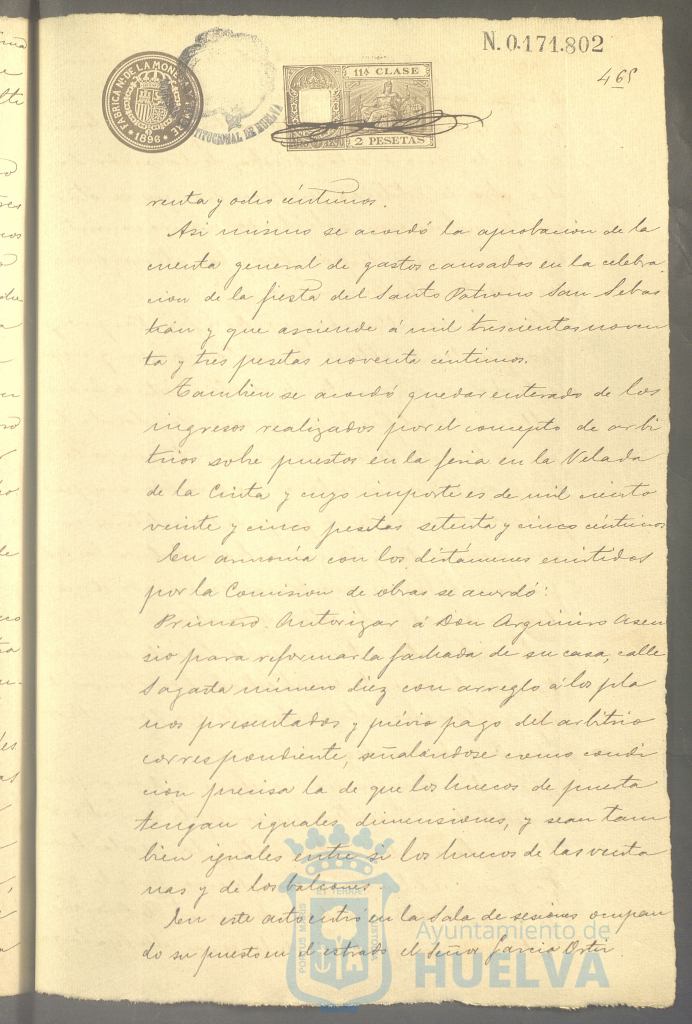 N. 0.171.802
465
FABRICA NAL DE LA MONEDA Y TIMBRE
1896
TITUCIONAL DE HUELVA
11ª CLASE
2 PESETAS
renta y ocho céntimos.
Asi mismo se acordó la aprobacion de la
cuenta general de gastos causados en la celebra
cion de la fiesta del Santo Patrono San Sebas
tian y que asciende á mil trescientas noven
ta y tres pesetas noventa céntimos.
Tambien se acordó quedar enterado de los
ingresos realizados por el concepto de arbi
trios sobre puestos en la feria en la Velada
de la Cinta y cuyo importe es de mil ciento
veinte y cinco pesetas setenta y cinco céntimos
En armonía con los dictámenes emitidos
por la Comision de obras se acordó:
Primero. Autorizar á Don Argimiro Asen
sio para reformar la fachada de su casa, calle
Sagasta número diez con arreglo á los pla
nos presentados y prévio pago del arbitrio
correspondiente, señalándose como condi
cion precisa la de que los huecos de puerta
tengan iguales dimensiones, y sean tam
bien iguales entre si los huecos de las venta
nas y de los balcones.
En este acto entró en la Sala de sesiones ocupan
do su puesto en el estrado el Señor Garcia Ortiz
PORTUS MARIS ET TERRAE CUSTODIA
Ayuntamiento de
HUELVA